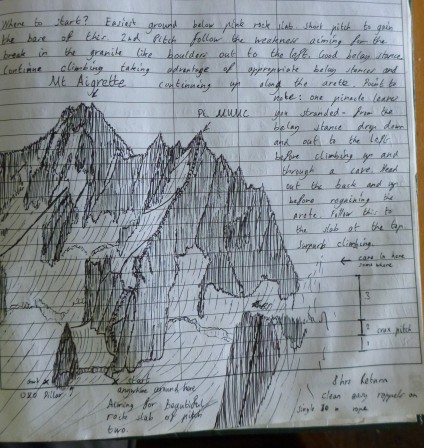 Where to start? Easiest ground below pink rock slab short pitch to gain
the base of ther 2nd Pitch follow the weakness aiming for the
break in the granite like boulders out to the left. Good belay stance
Continue climbing taking advantage of appropriate belay stances and
continuing up along the arete. Point to
Mt Aigrette
note: one pinacle leaves
PE. MUMC
you stranded - from the
belay stance drop down
and out to the left
before climbing up and
through a cave, head
out the back and up
before regaining the
arete. Follow this to
the slab at the top.
Superb climbing.
← cave in here
some where
3
2 crux pitch
1
start
anywhere around here
OXO Pillar?
Aiming for beautiful
rock slab of pitch
two.
3 hrs Return
clean easy
single rope